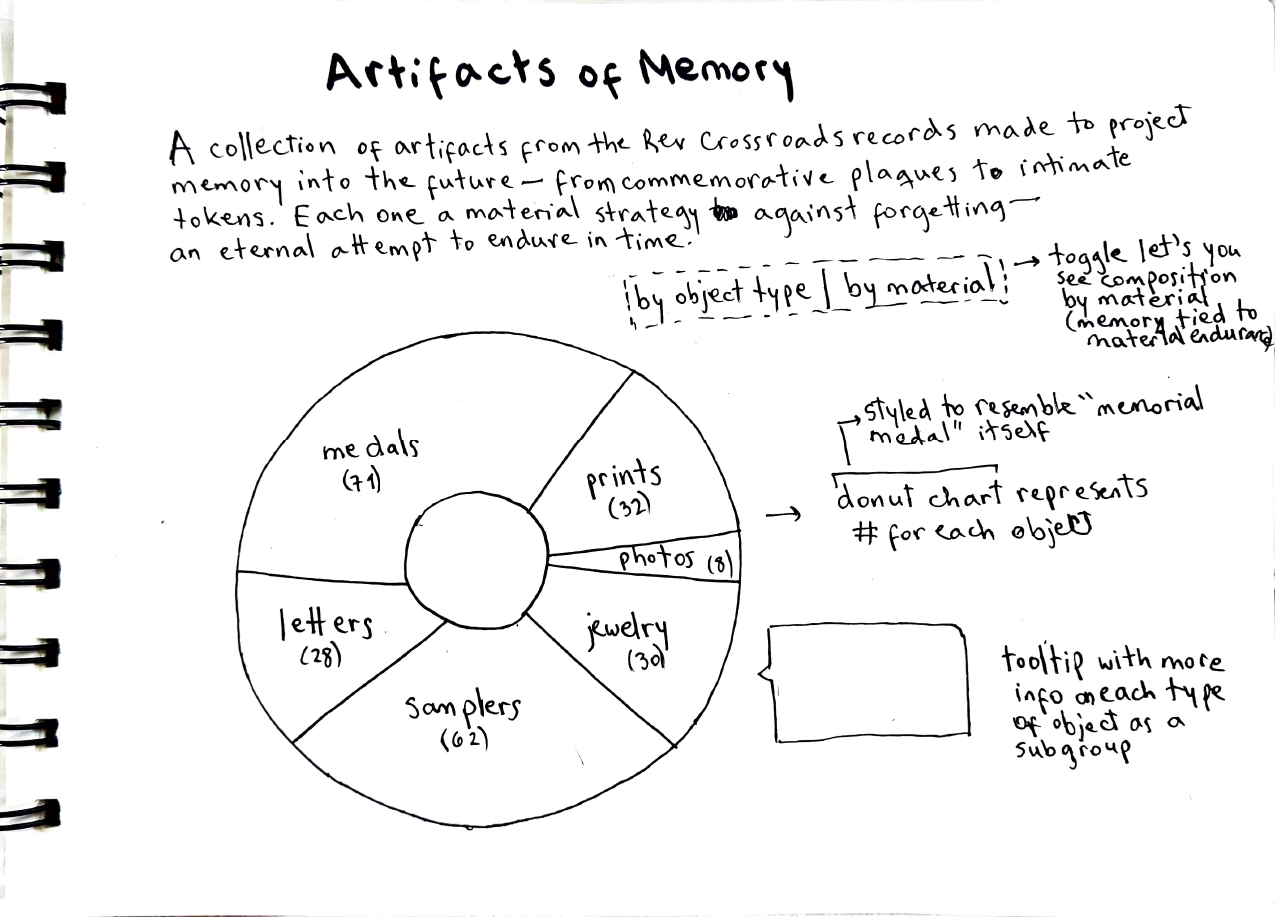 Artifacts of Memory
A collection of artifacts from the Rev Crossroads records made to project
memory into the future — from commemorative plaques to intimate
tokens. Each one a material strategy against forgetting —
an eternal attempt to endure in time.
by object type | by material
→ toggle let's you
see composition
by material
(memory tied to
material endurance)
medals
(71)
prints
(32)
photos (8)
jewelry
(30)
samplers
(62)
letters
(28)
→ styled to resemble "memorial
medal" itself
→ donut chart represents
# for each object
tooltip with more
info on each type
of object as a
subgroup